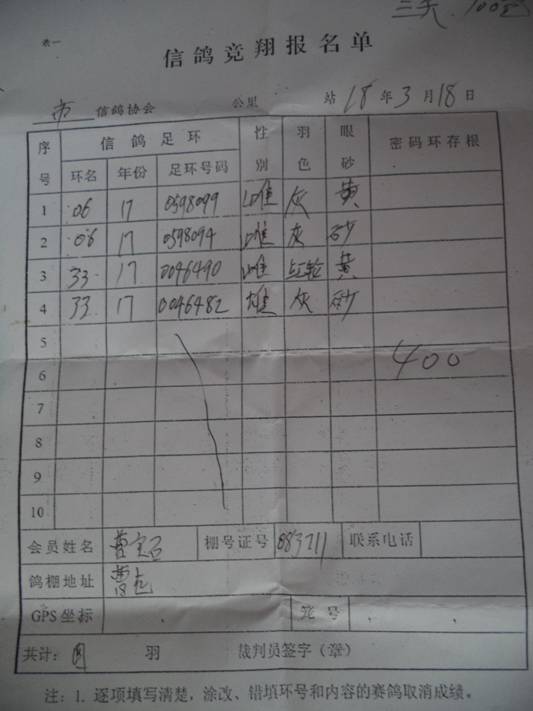 三天 100它
表一
信鸽竞翔报名单
市 信鸽协会 公里 站 18 年 3 月 18 日
序号 信鸽足环 性别 羽色 眼砂 密码环存根
环名 年份 足环号码
1 06 17 0598099 雌 灰 黄
2 06 17 0598094 雌 灰 砂
3 33 17 0046490 雌 红轮 黄
4 33 17 0046482 雄 灰 砂
5
6 400
7
8
9
10
会员姓名 曹宝石 棚号证号 083211 联系电话
鸽棚地址 曹
GPS坐标 笼号
共计: 四 羽 裁判员签字(章)
注:1. 逐项填写清楚,涂改、错填环号和内容的赛鸽取消成绩。